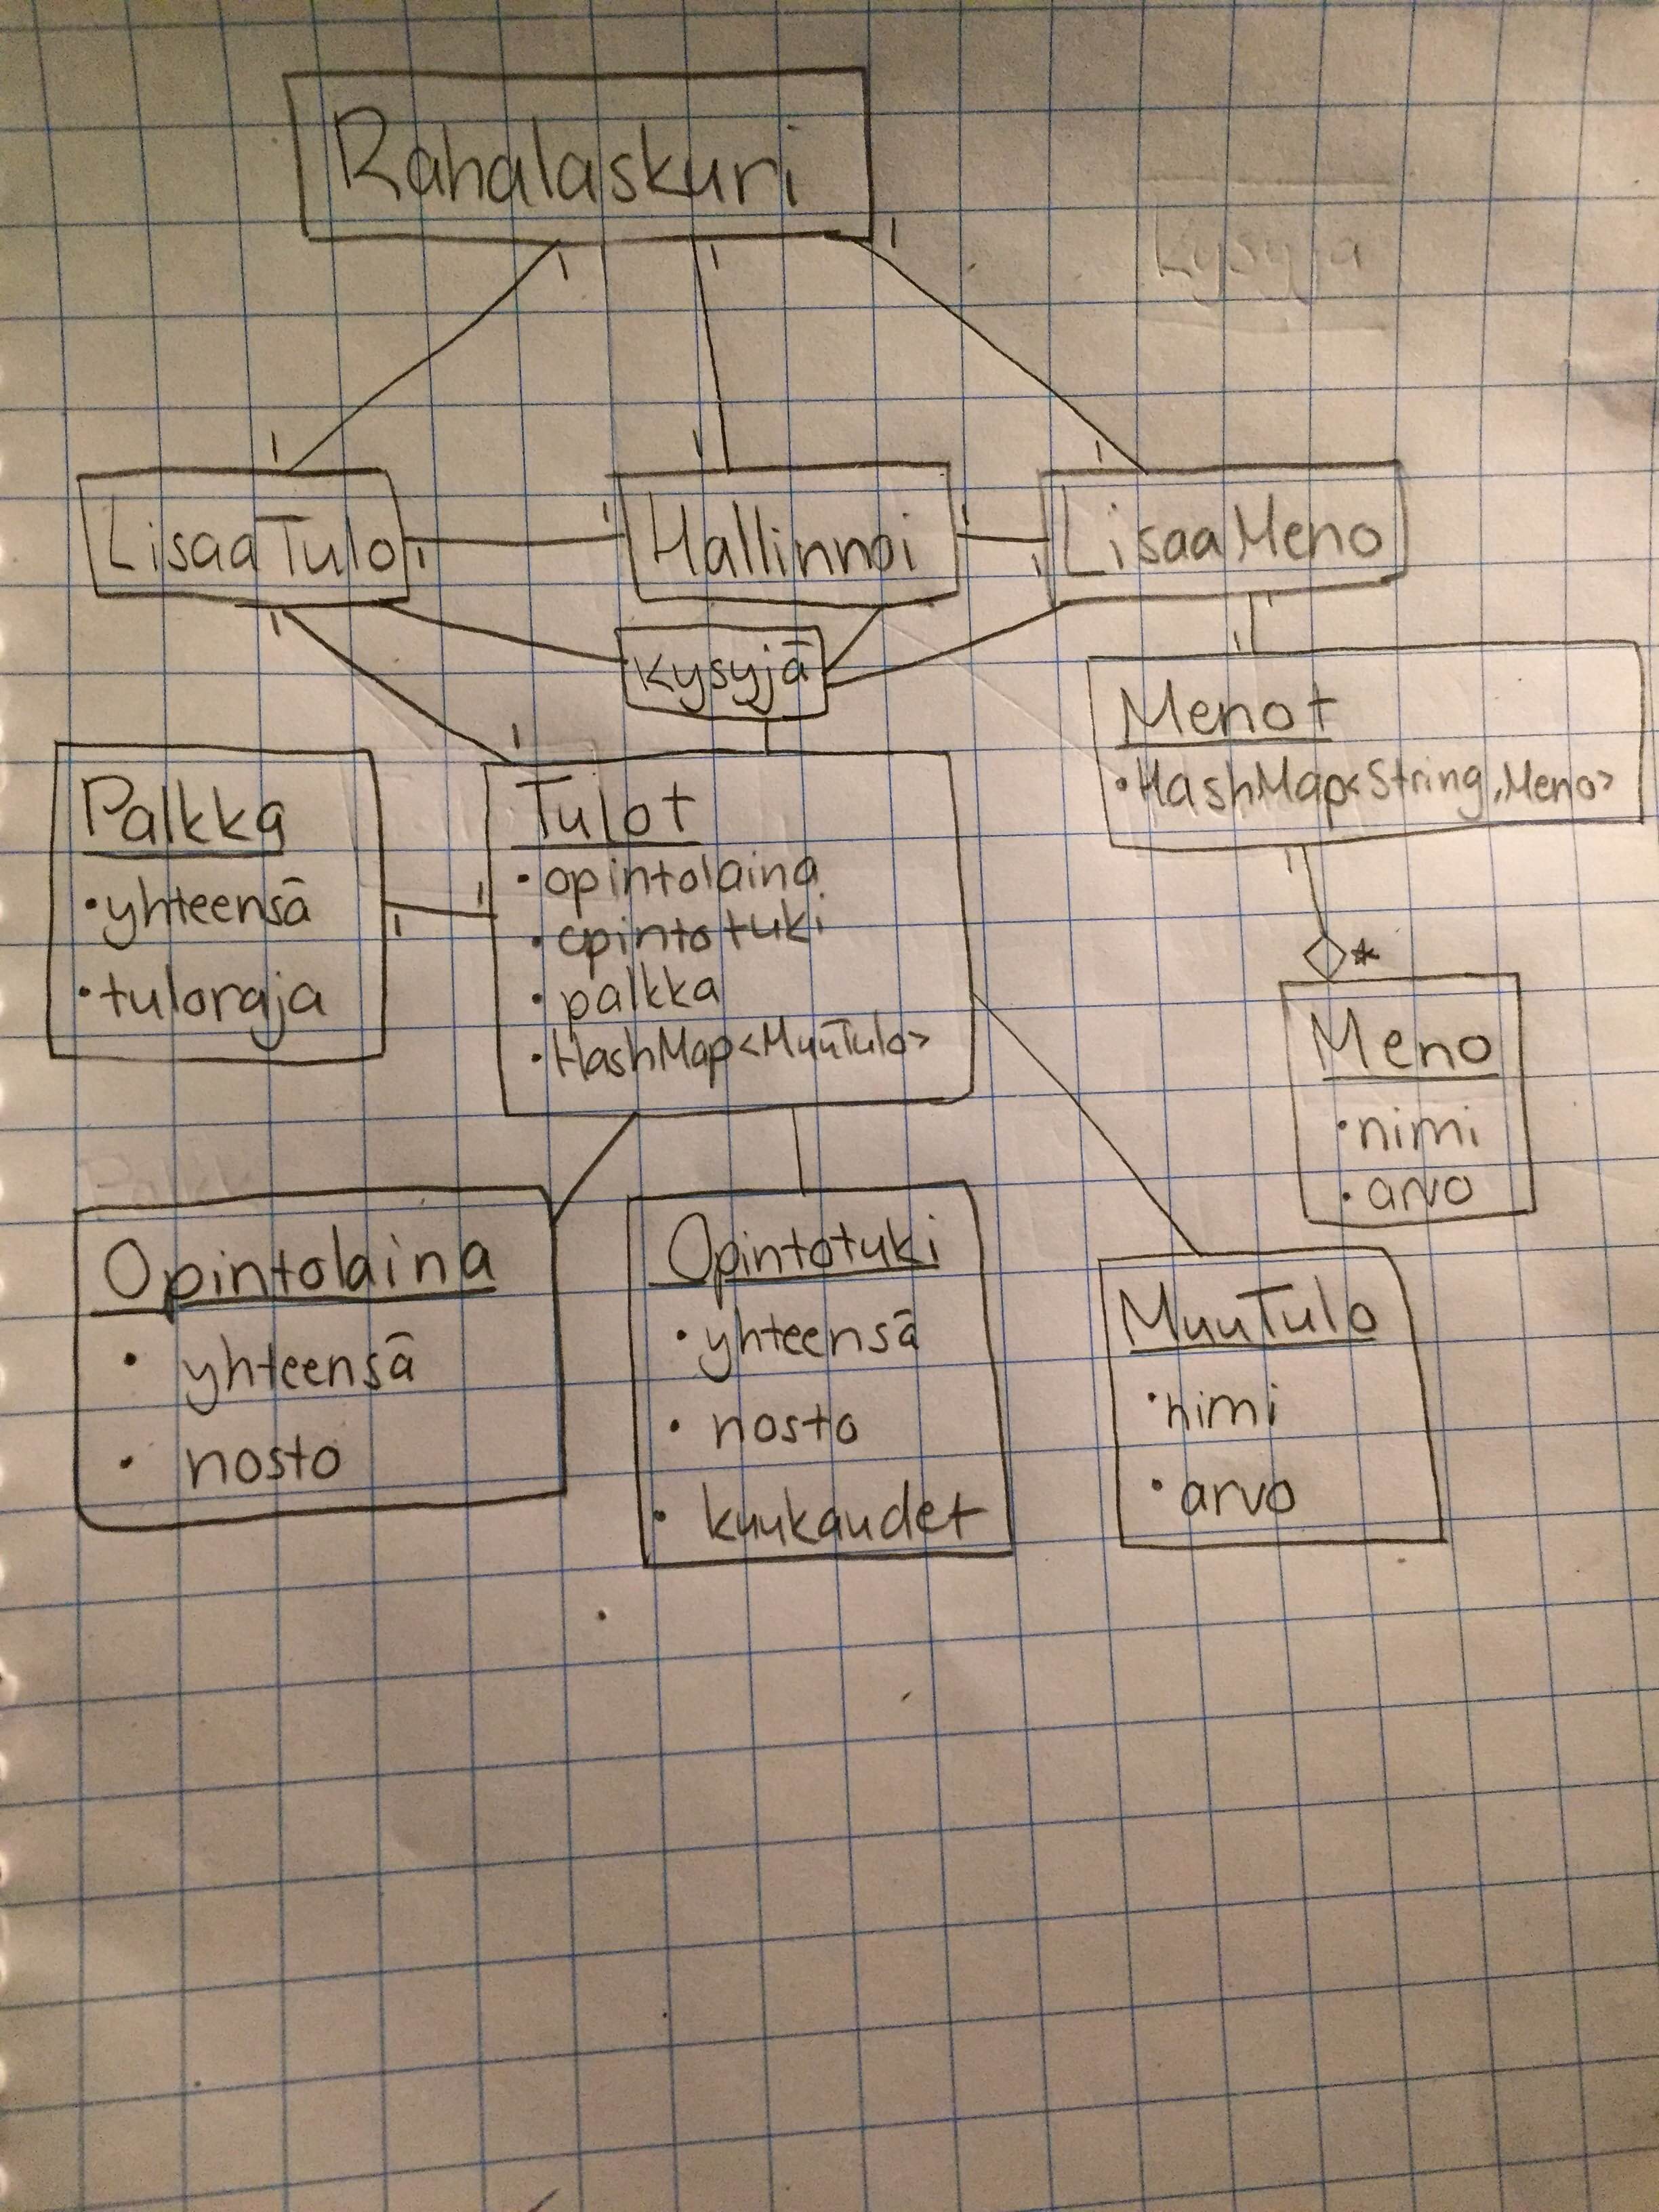 Rahalaskuri
Kysyjä
1
1
1
1
1
1
LisaaTulo
1
1
Hallinnoi
1
1
LisaaMeno
1
1
1
Kysyjä
Menot
•HashMap<String,Meno>
1
1
Palkka
•yhteensä
•tuloraja
1
1
Tulot
•opintolaina
•opintotuki
•palkka
•HashMap<MuuTulo>
*
Meno
•nimi
•arvo
Palkk
Opintolaina
• yhteensä
• nosto
Opintotuki
•yhteensä
• nosto
• kuukaudet
MuuTulo
•nimi
•arvo